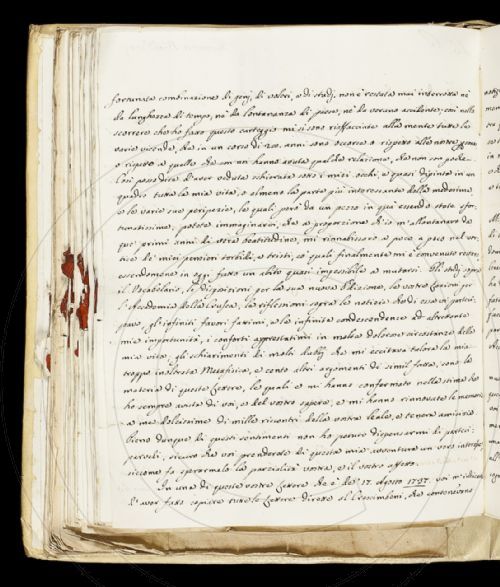 fortunata combinazione di genj, di voleri, e di studj, non è restata mai interrotta nè
da lunghezza di tempo, nè da lontananza di paese, nè da verano accidente; così nello
scorrere che ho fatto questo carteggio mi si sono riaffacciate alla mente tutte le
varie vicende, che in un corso di 20. anni sono occorse o rispetto alle nostre persone
o rispetto a quelle che con noi hanno avuta qualche relazione, che non con poche
posso dire d'aver veduta schierata sotto i miei occhi, e quasi dipinta in un
quadro tutta la mia vita, o almeno la parte più interessante della medesima,
e le varie sue peripezie, le quali però da un pezzo in qua essendo state sfor-
tunatissime, potete immaginarvi, che a proporzione ch'io m'allontanavo da
que' primi anni di vera beatitudine, mi rinnabissavo a poco a poco nel vor-
tice de' miei pensieri torbidi, e tristi, co' quali finalmente mi è convenuto
essendomene in oggi fatto un abito quasi impossibile a mutarsi. Gli studj sopra
il Vocabolario, le disposizioni per la sua nuova Edizione, le vostre Lezioni per
l'Accademia della Crusca, le riflessioni sopra le notizie che di essa vi partici-
pavo, gli infiniti favori fattimi, e la infinita condescendenza ad altrettante
mie importunità, i conforti apprestatimi in molte dolorose circostanze della
mia vita, gli schiarimenti di molti dubbj che mi eccitava talora la mia
troppo inoltrata Metafisica, e cento altri argomenti di simil fatta, sono la
materia di queste Lettere, le quali e mi hanno confermato nella stima che
ho sempre avuta di voi, e del vostro sapere, e mi hanno rinnovata la memoria
a me dolcissima di mille riscontri della vostra leale, e tenera amicizia
Pieno dunque di questi sentimenti non ho potuto dispensarmi di parteci-
parveli, sicuro che voi prenderete di questa mia
siccome fa sperarmelo la parzialità vostra, e il vostro affetto.
In una di queste vostre Lettere che è de' 17. Agosto 1757. voi m'
d'aver fatto copiare tutte le Lettere dirette al che contenevano